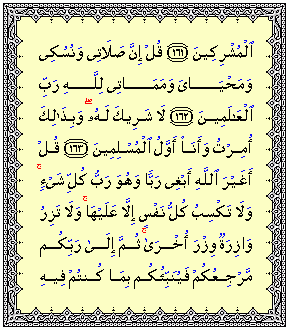 ٱلْمُشْرِكِينَ ١٦١ قُلْ إِنَّ صَلَاتِى وَنُسُكِى
وَمَحْيَاىَ وَمَمَاتِى لِلَّهِ رَبِّ
ٱلْعَـٰلَمِينَ ١٦٢ لَا شَرِيكَ لَهُۥ ۖ وَبِذَٰلِكَ
أُمِرْتُ وَأَنَا۠ أَوَّلُ ٱلْمُسْلِمِينَ ١٦٣ قُلْ
أَغَيْرَ ٱللَّهِ أَبْغِى رَبًّا وَهُوَ رَبُّ كُلِّ شَىْءٍ ۚ
وَلَا تَكْسِبُ كُلُّ نَفْسٍ إِلَّا عَلَيْهَا ۚ وَلَا تَزِرُ
وَازِرَةٌ وِزْرَ أُخْرَىٰ ۚ ثُمَّ إِلَىٰ رَبِّكُم
مَّرْجِعُكُمْ فَيُنَبِّئُكُم بِمَا كُنتُمْ فِيهِ